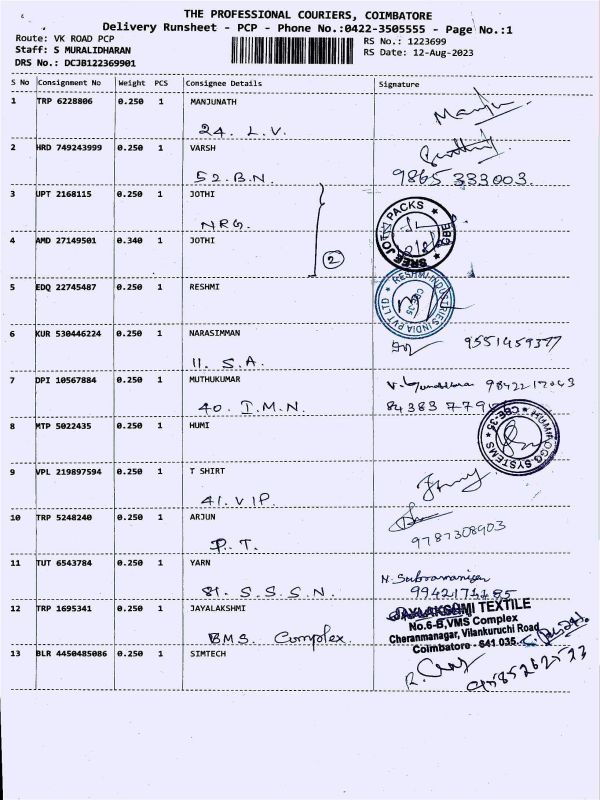 THE PROFESSIONAL COURIERS, COIMBATORE
Delivery Runsheet - PCP - Phone No.:0422-3505555 - Page No.:1
Route: VK ROAD PCP
RS No.: 1223699
Staff: S MURALIDHARAN
RS Date: 12-Aug-2023
DRS No.: DCJB122369901
S No Consignment No Weight PCS Consignee Details Signature
1 TRP 6228806 0.250 1 MANJUNATH
24. L.V.
2 HRD 749243999 0.250 1 VARSH
52. B.N. 9865 333003
3 UPT 2168115 0.250 1 JOTHI
NRG. SREE JOTHI PACKS CBE
4 AMD 27149501 0.340 1 JOTHI
2
5 EDQ 22745487 0.250 1 RESHMI
RESHMI INDUSTRIES INDIA PVT LTD CBE-35
6 KUR 530446224 0.250 1 NARASIMMAN
11. S.A.
7 DPI 10567884 0.250 1 MUTHUKUMAR
40. I.M.N. 84383
8 MTP 5022435 0.250 1 HUMI
SYSTEMS CBE-35
9 VPL 219897594 0.250 1 T SHIRT
41. V.I.P.
10 TRP 5248240 0.250 1 ARJUN
P. T. 9787308903
11 TUT 6543784 0.250 1 YARN N. Subramanian
81. S.S.S.N.
12 TRP 1695341 0.250 1 JAYALAKSHMI
BMS. Complex.
JAYALAKSHMI TEXTILE
No.6-B,VMS Complex
Cheranmanagar, Vilankuruchi Road
Coimbatore - 641 035.
13 BLR 4450485086 0.250 1 SIMTECH